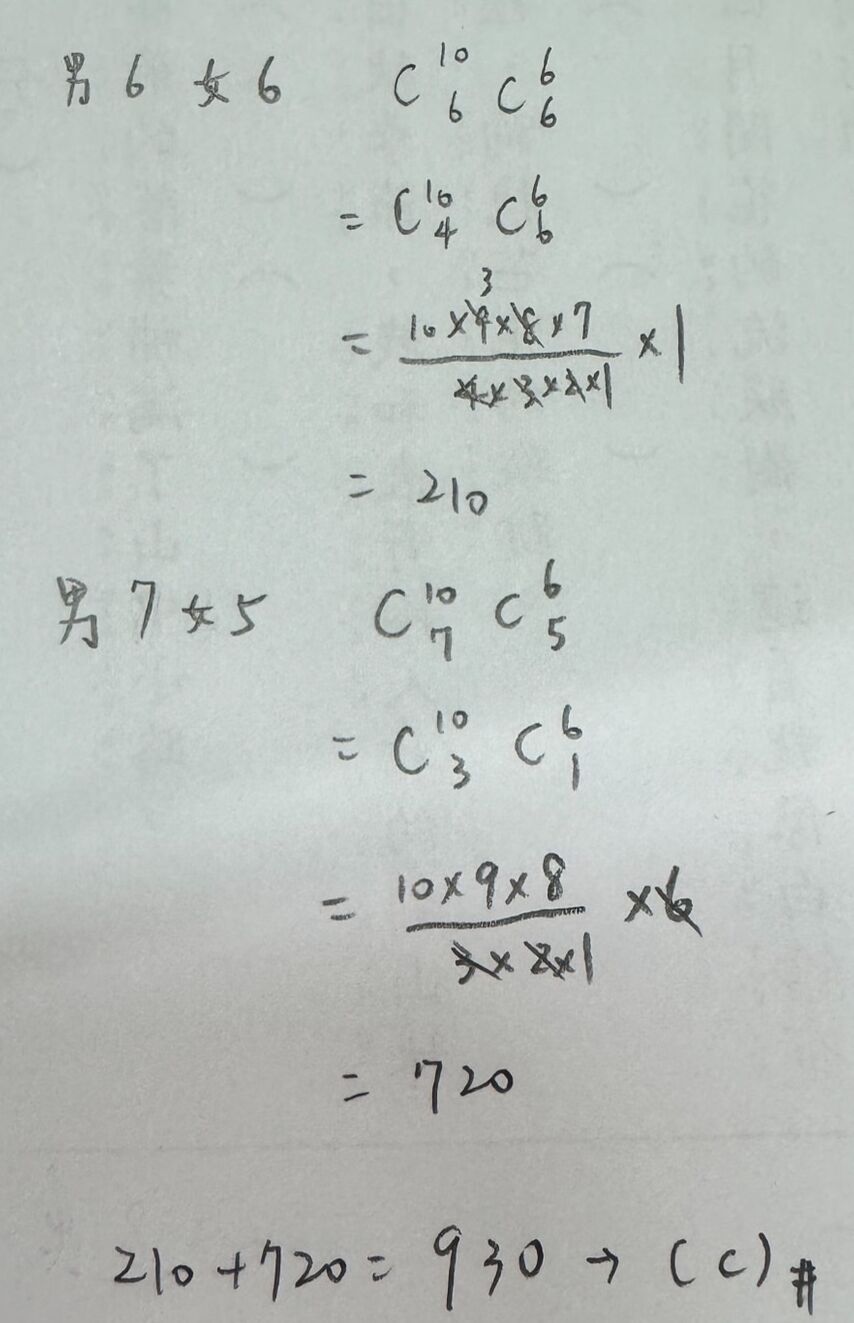 男 6 女 6 C¹⁰₆ C⁶₆
= C¹⁰₄ C⁶₆
= (10×9×8×7)/(4×3×2×1) × 1
3
= 210
男 7 女 5 C¹⁰₇ C⁶₅
= C¹⁰₃ C⁶₁
= (10×9×8)/(3×2×1) ×6
= 720
210+720= 930 → (C)#